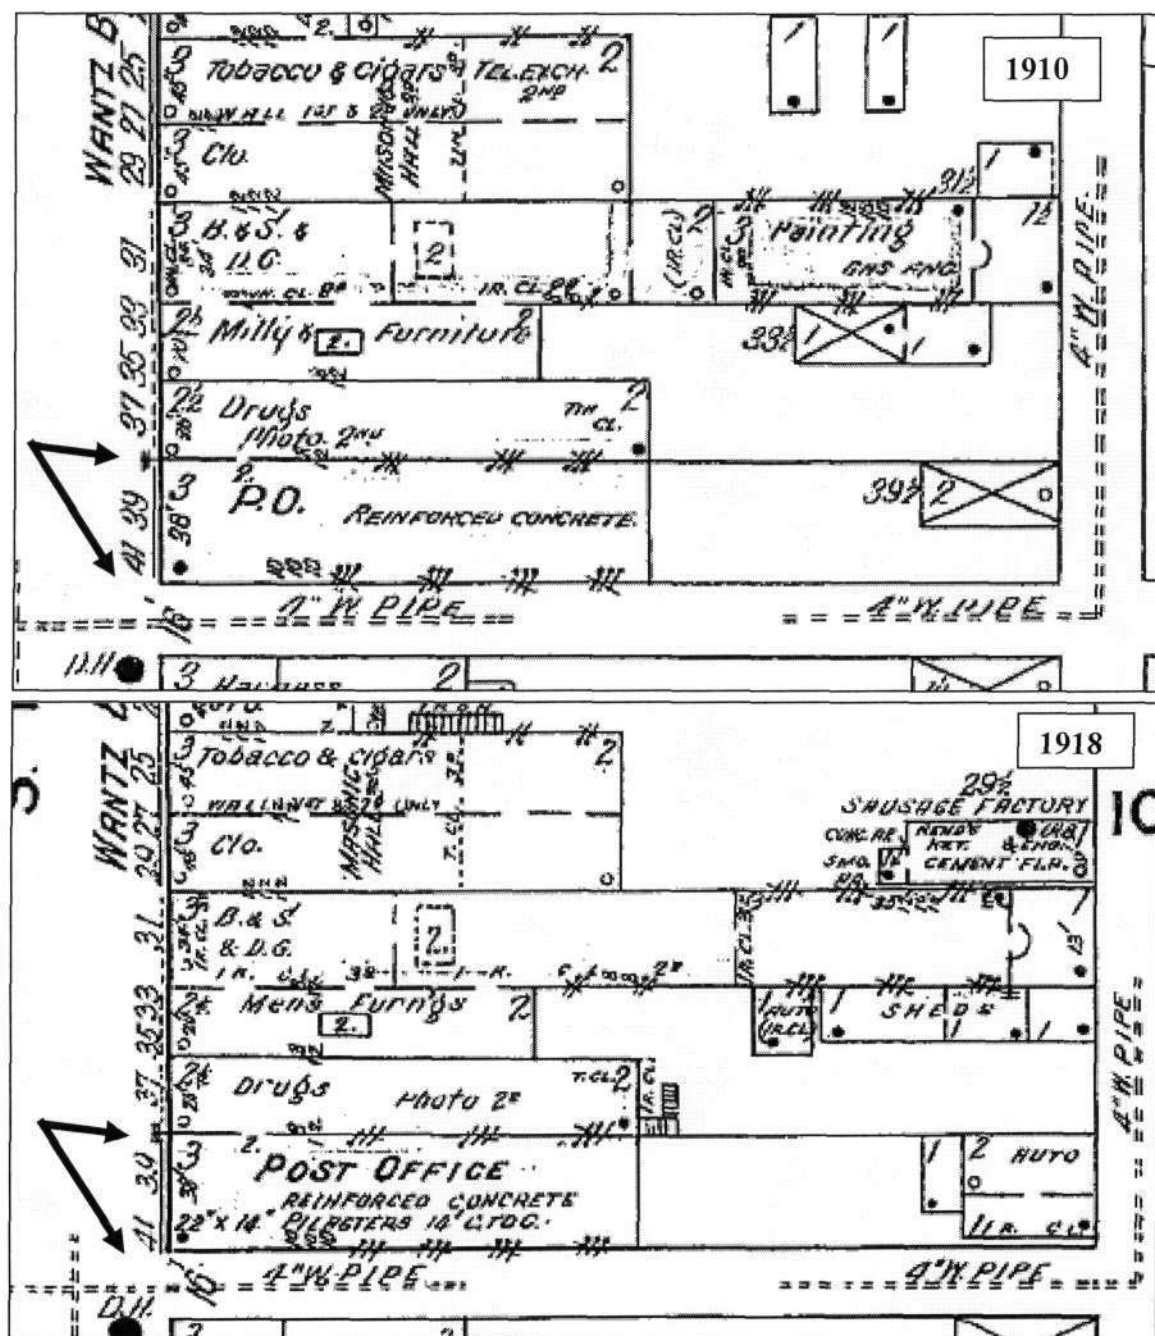 1910
WANTZ B
25
27
29
31
33
35
37
39
41
2.
3
Tobacco & Cigars
TEL. EXCH.
2ND
2
45'
WALL 1ST & 2D ONLY
MASONIC
HALL 3D
3
Clo.
45'
3
B. & S. &
D.G.
2
IR. CL.
(IR. CL.)
2
3
Painting
GAS ENG.
31½
1
1½
2½
Milly &
Furniture
2
2.
33½
1
1
2½
Drugs
Photo. 2ND
TIN
CL.
2
2.
3
38'
P.O.
REINFORCED CONCRETE.
39½
2
10
10
10
4" W. PIPE
4" W. PIPE
4" W. PIPE.
16'
D.H.
3
Harness
2
1918
S.
WANTZ
25
27
29
31
33
35
37
39
41
3
Tobacco & Cigars
2
45'
MASONIC
HALL 3D
T. CL.
3
Clo.
45'
29½
SAUSAGE FACTORY
CEMENT FLR.
10
3
B. & S.
& D.G.
2
IR. CL.
13'
2½
Mens Furn'gs
2
2.
1
AUTO
(IR. CL.)
1
SHEDS
1
1
2½
Drugs
Photo 2D
T. CL.
2
IR. CL.
2.
3
38'
POST OFFICE
REINFORCED CONCRETE
22" X 14" PILASTERS 14' C. TO C.
1
2
AUTO
1
IR. CL.
4" W. PIPE
4" W. PIPE
4" W. PIPE
16'
D.H.
3
2